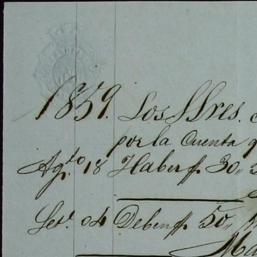 1859. Los SSres.
por la Cuenta
Agto 18 Haber p. 30,
Set. 04 Deben p. 50,